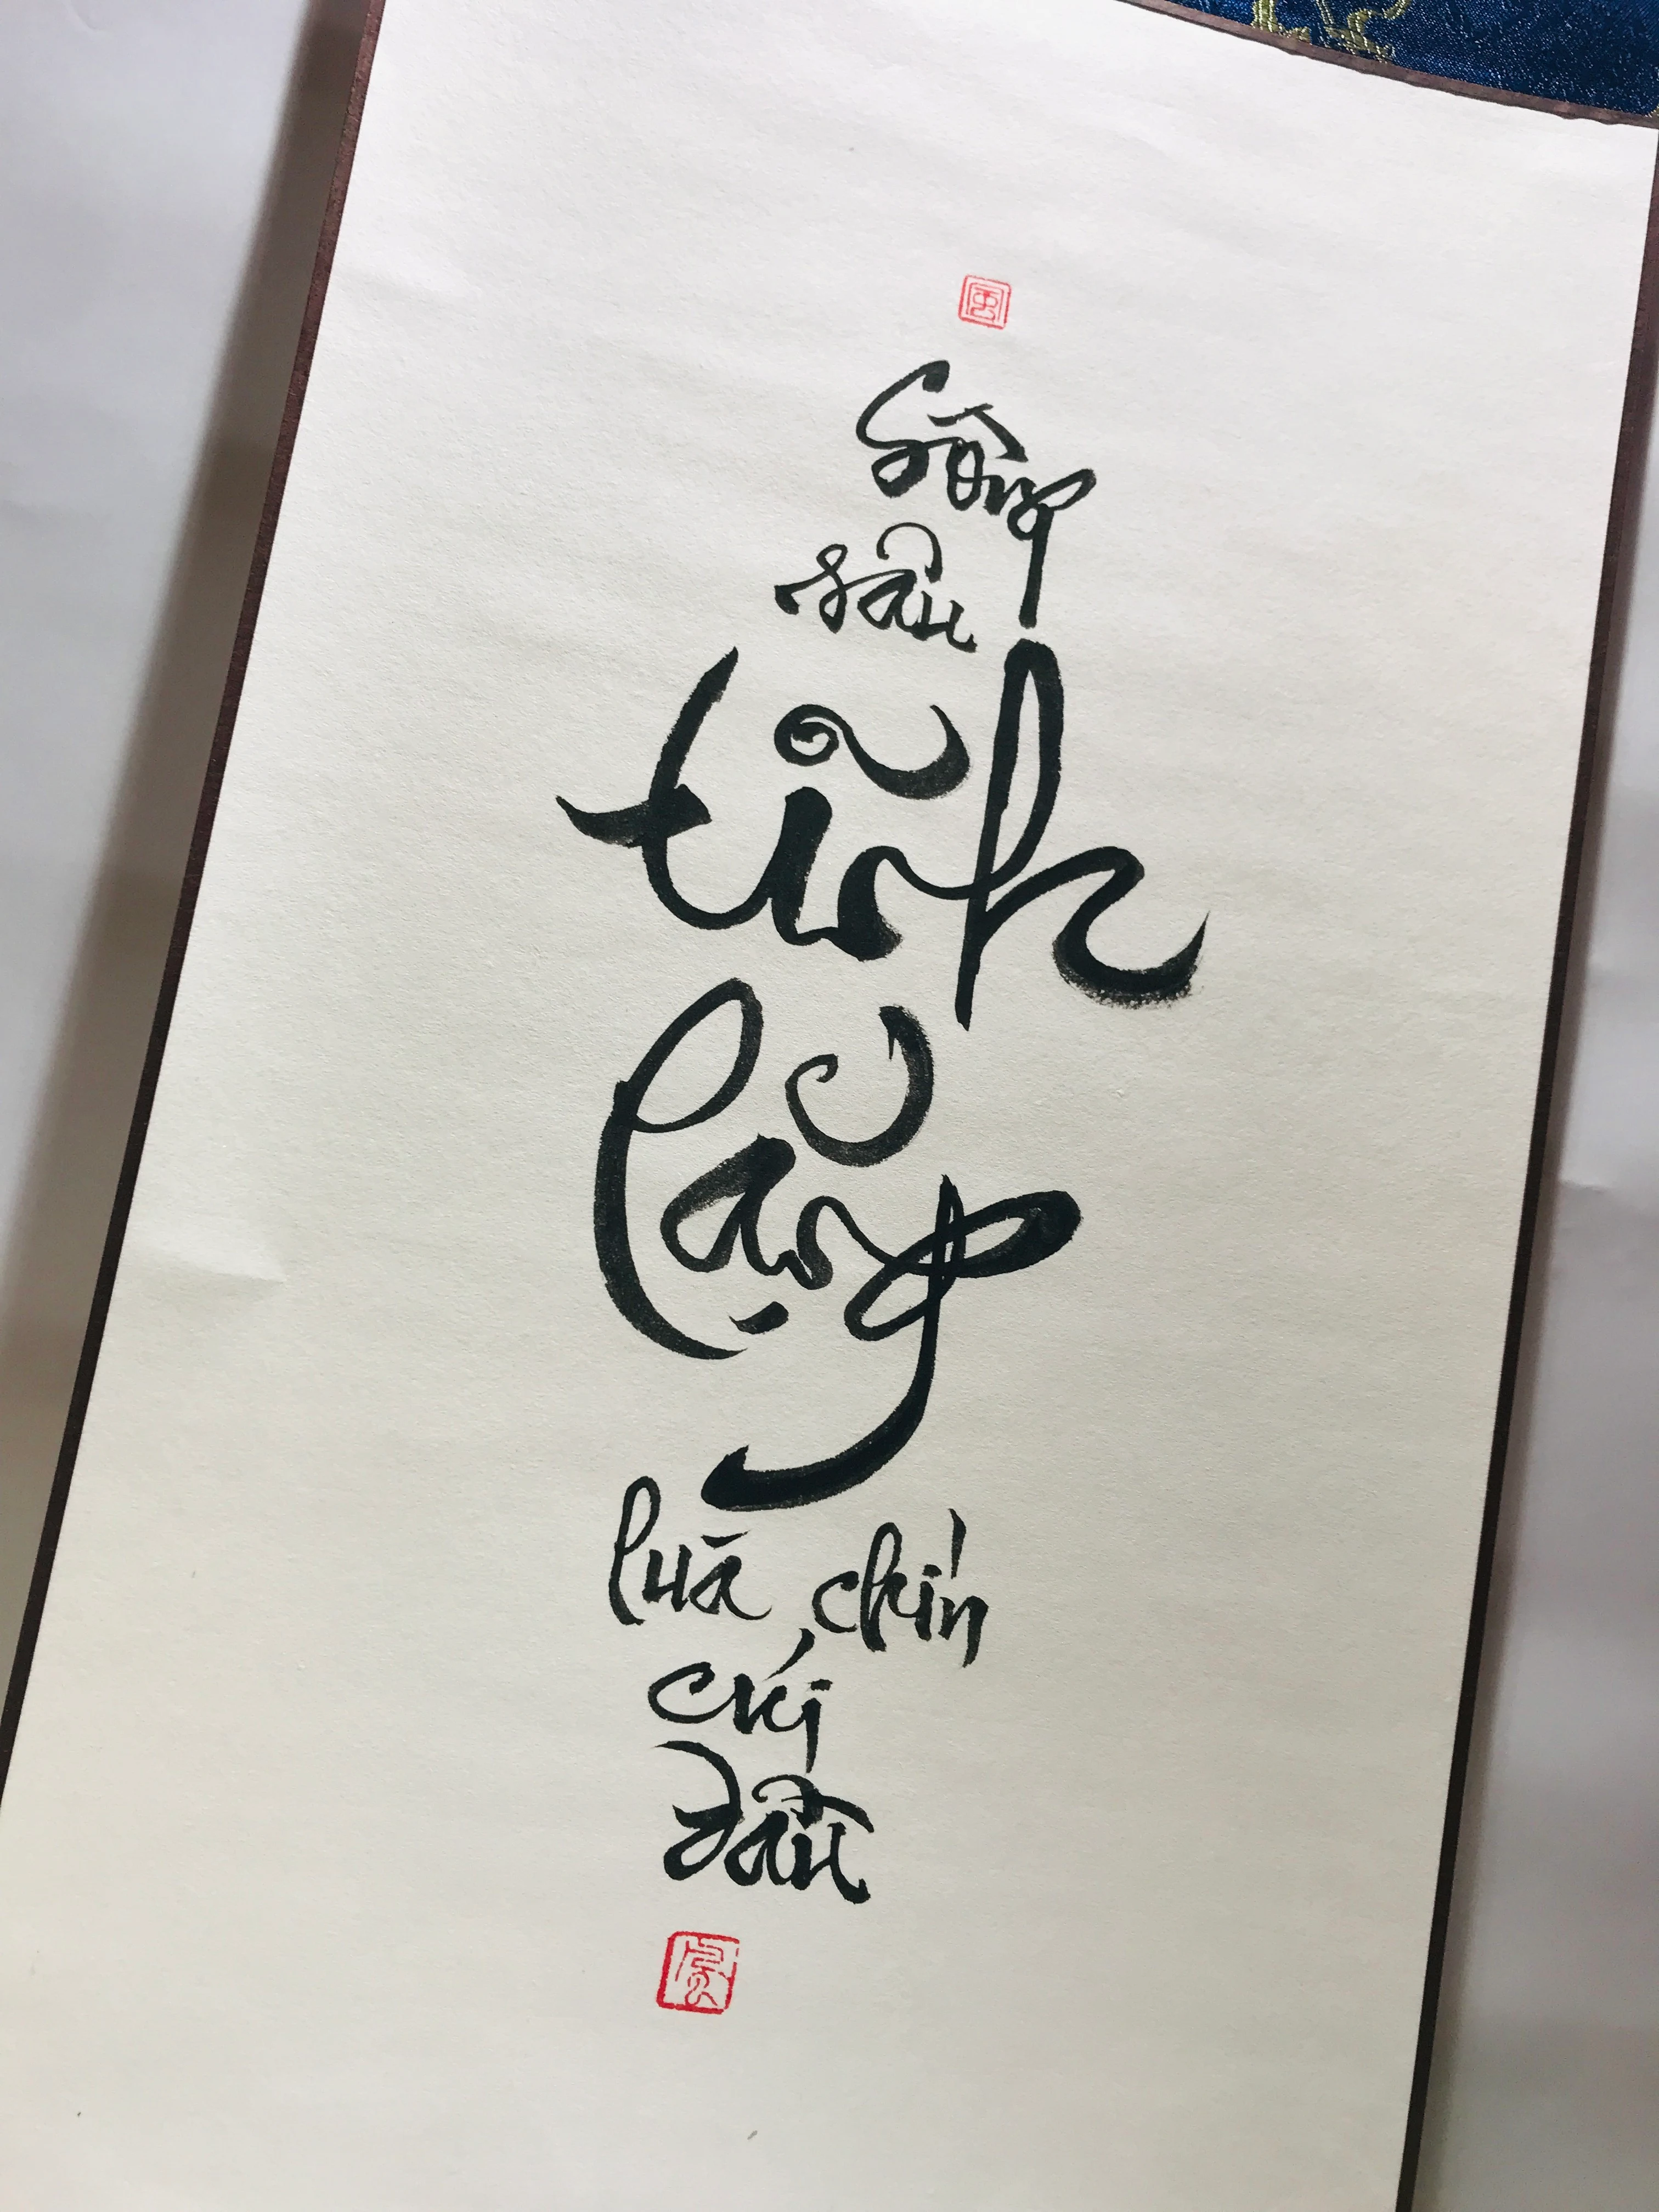 風
Sông
sâu
tĩnh
lặng
luá chín
cúi
đầu